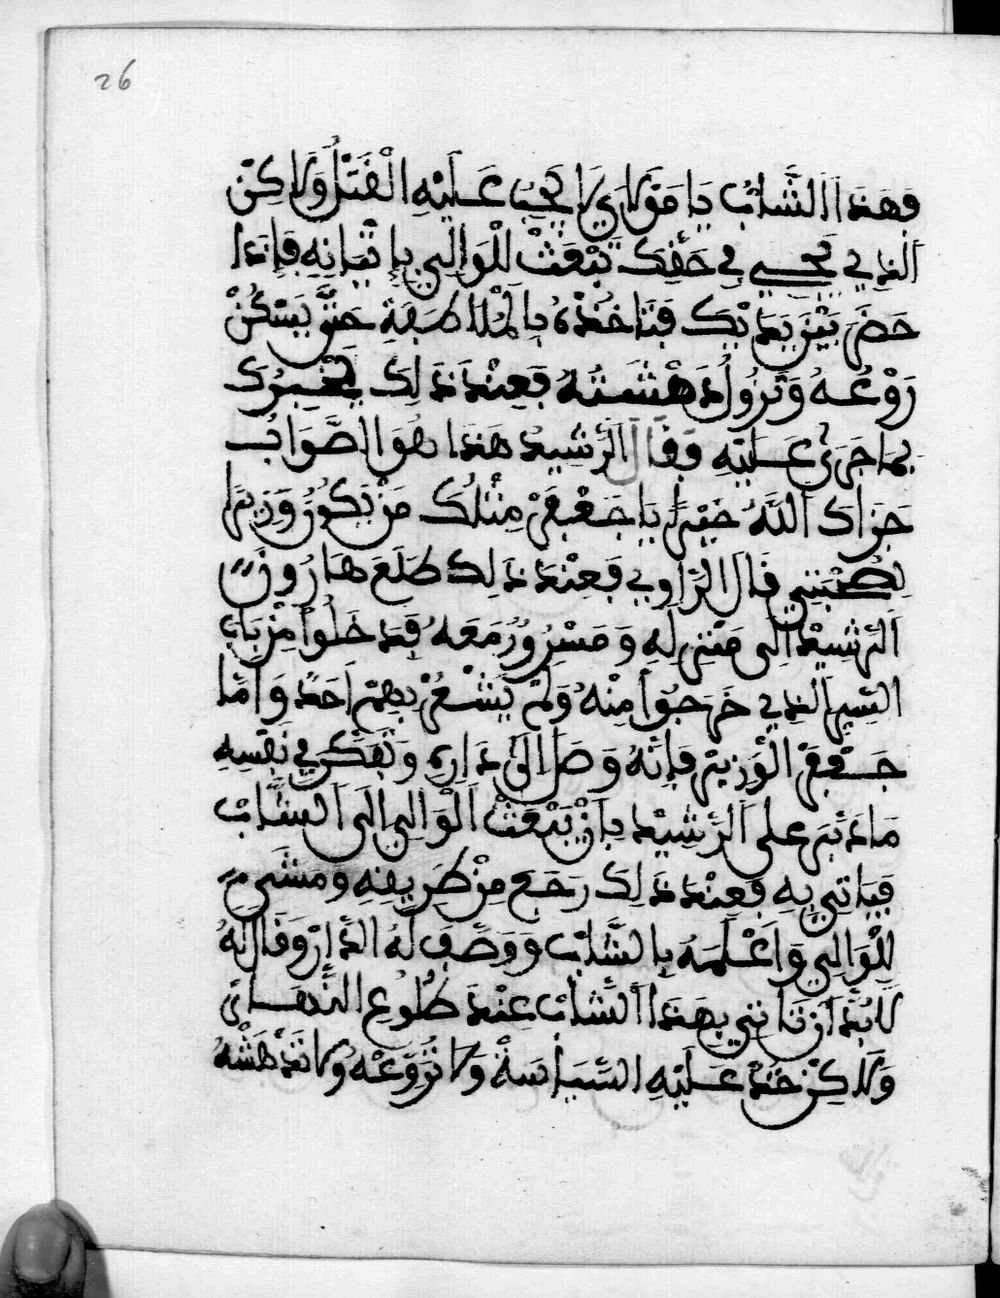 26
فهذا الشاب يا مولاي لا يجب عليه القتل ولاكن
الذي يجي في حقك تبعث للوالي باتيانه فاذا
حضر بين يديك فتاخذه بالملاطفة حتى يسكن
روعه وتزول دهشته فعند ذلك يخبرك
بما جرى عليه وقال الرشيد هذا هو الصواب
جزاك الله خيرا يا جعفر مثلك من يكون وزيرا
لصحبتي قال الراوي فعند ذلك طلع هارون
الرشيد الى منزله ومسرور معه فدخلوا من باب
السر الذي خرجوا منه ولم يشعر بهم احد واما
جعفر الوزير فانه وصل الى داره وتفكر في نفسه
ما دبر على الرشيد بان يبعث الوالي الى الشاب
فياتي به فعند ذلك رجع من طريقه ومشى
للوالي واعلمه بالشاب ووصف له الدار وقال له
لابد ان تاتني بهذا الشاب عند طلوع النهار
ولاكن خذ عليه السياسة ولا تروعه ولا تدهشه